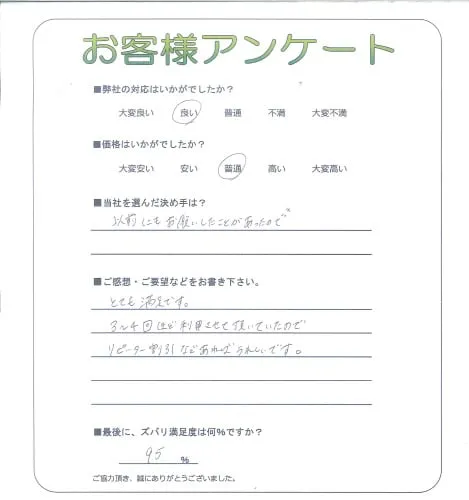 お客様アンケート
■弊社の対応はいかがでしたか?
大変良い 良い 普通 不満 大変不満
■価格はいかがでしたか?
大変安い 安い 普通 高い 大変高い
■当社を選んだ決め手は?
以前にもお願いしたことがあったので
■ご感想・ご要望などをお書き下さい。
とても満足です。
3~4回ほど利用させて頂いていたので
リピーター割引などあればうれしいです。
■最後に、ズバリ満足度は何%ですか?
95 %
ご協力頂き、誠にありがとうございました。